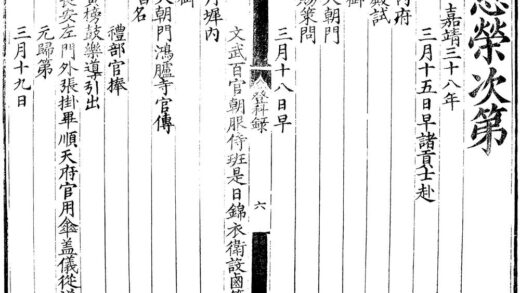 恩榮次第
嘉靖三十八年
三月十五日早諸貢士赴
府
殿試
御
朝門
策問
三月十八日早
登科錄 六
文武百官朝服侍班是日錦衣衛設鹵
墀內
御
朝門鴻臚寺官傳
名
禮部官捧
黃榜鼓樂導引出
長安左門外張掛畢順天府官用傘盖儀從
元歸第
三月十九日